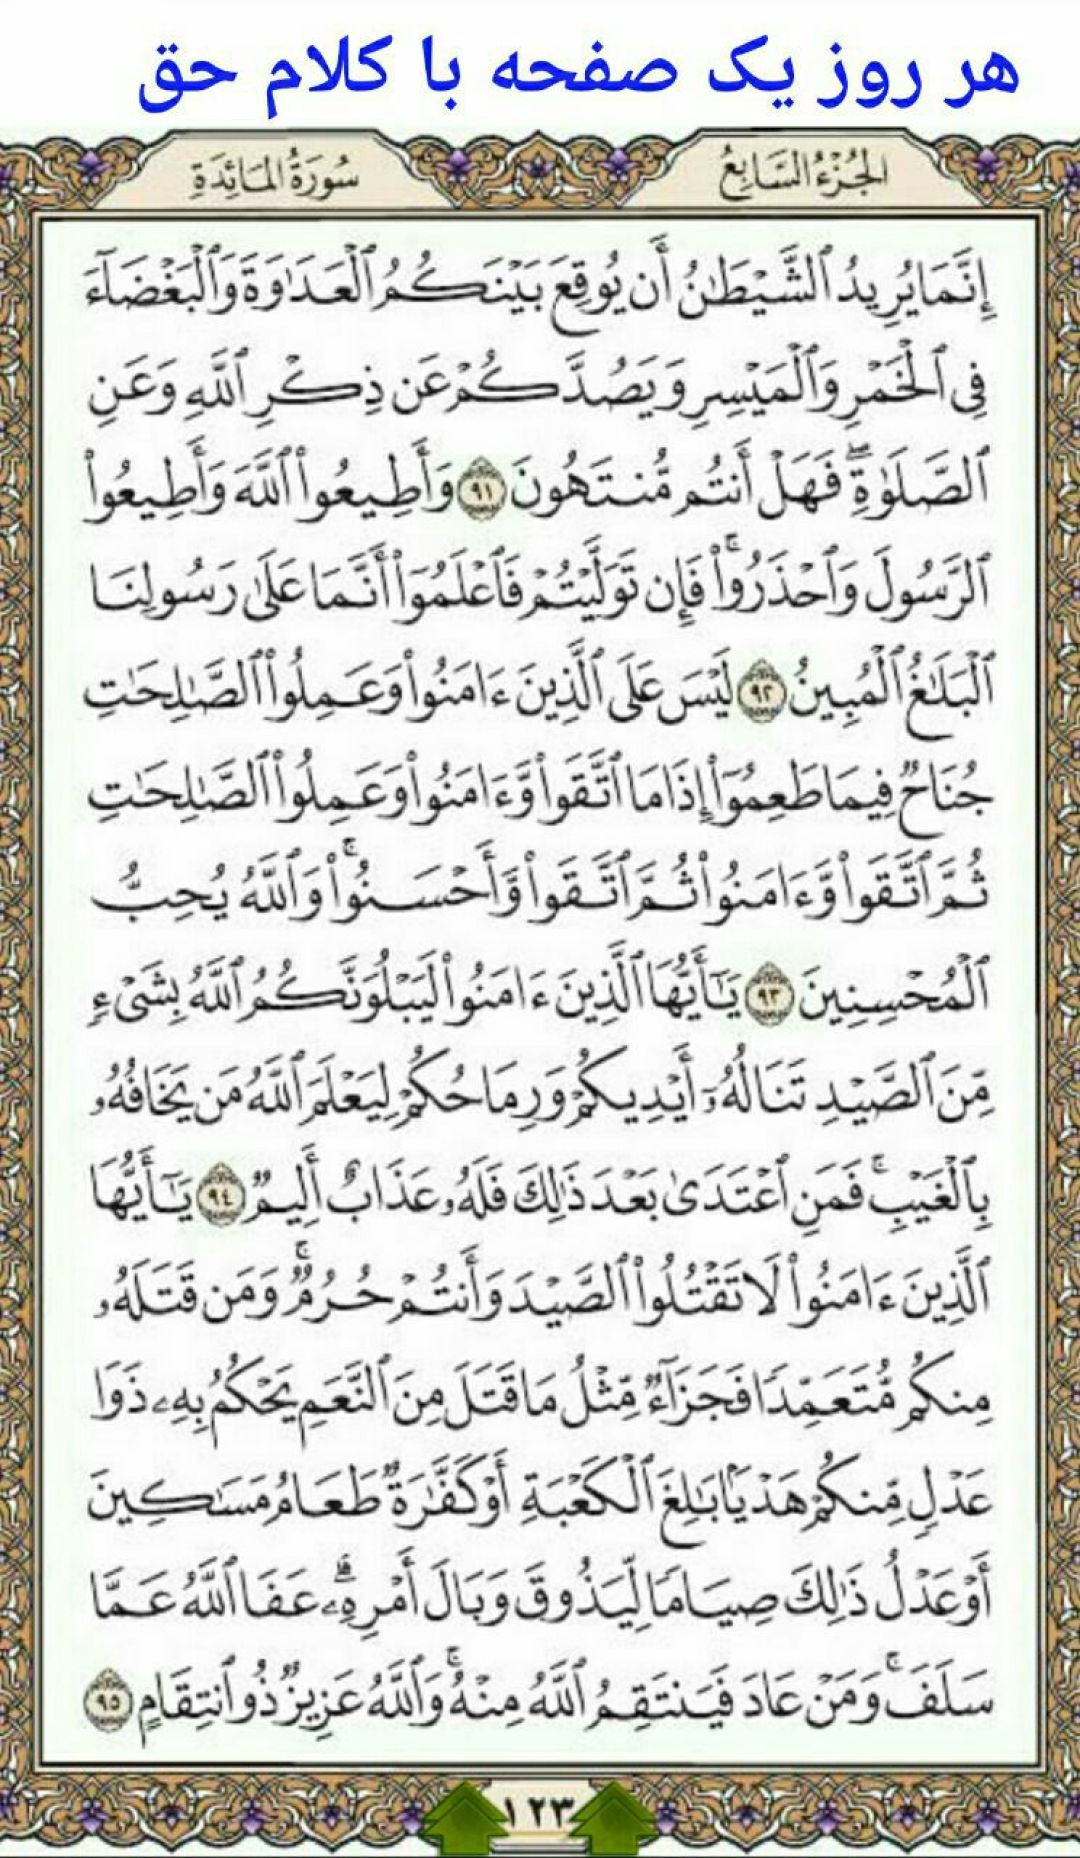 هر روز یک صفحه با کلام حق
الجُزْءُ السَّابِعُ
سُورَةُ المَائِدَةِ
إِنَّمَا يُرِيدُ ٱلشَّيْطَٰنُ أَن يُوقِعَ بَيْنَكُمُ ٱلْعَدَٰوَةَ وَٱلْبَغْضَآءَ
فِى ٱلْخَمْرِ وَٱلْمَيْسِرِ وَيَصُدَّكُمْ عَن ذِكْرِ ٱللَّهِ وَعَنِ
ٱلصَّلَوٰةِ ۖ فَهَلْ أَنتُم مُّنتَهُونَ ٩١ وَأَطِيعُوا۟ ٱللَّهَ وَأَطِيعُوا۟
ٱلرَّسُولَ وَٱحْذَرُوا۟ ۚ فَإِن تَوَلَّيْتُمْ فَٱعْلَمُوٓا۟ أَنَّمَا عَلَىٰ رَسُولِنَا
ٱلْبَلَٰغُ ٱلْمُبِينُ ٩٢ لَيْسَ عَلَى ٱلَّذِينَ ءَامَنُوا۟ وَعَمِلُوا۟ ٱلصَّٰلِحَٰتِ
جُنَاحٌ فِيمَا طَعِمُوٓا۟ إِذَا مَا ٱتَّقَوا۟ وَّءَامَنُوا۟ وَعَمِلُوا۟ ٱلصَّٰلِحَٰتِ
ثُمَّ ٱتَّقَوا۟ وَّءَامَنُوا۟ ثُمَّ ٱتَّقَوا۟ وَّأَحْسَنُوا۟ ۚ وَٱللَّهُ يُحِبُّ
ٱلْمُحْسِنِينَ ٩٣ يَٰٓأَيُّهَا ٱلَّذِينَ ءَامَنُوا۟ لَيَبْلُوَنَّكُمُ ٱللَّهُ بِشَىْءٍ
مِّنَ ٱلصَّيْدِ تَنَالُهُۥٓ أَيْدِيكُمْ وَرِمَاحُكُمْ لِيَعْلَمَ ٱللَّهُ مَن يَخَافُهُۥ
بِٱلْغَيْبِ ۚ فَمَنِ ٱعْتَدَىٰ بَعْدَ ذَٰلِكَ فَلَهُۥ عَذَابٌ أَلِيمٌ ٩٤ يَٰٓأَيُّهَا
ٱلَّذِينَ ءَامَنُوا۟ لَا تَقْتُلُوا۟ ٱلصَّيْدَ وَأَنتُمْ حُرُمٌ ۚ وَمَن قَتَلَهُۥ
مِنكُم مُّتَعَمِّدًا فَجَزَآءٌ مِّثْلُ مَا قَتَلَ مِنَ ٱلنَّعَمِ يَحْكُمُ بِهِۦ ذَوَا
عَدْلٍ مِّنكُمْ هَدْيًۢا بَٰلِغَ ٱلْكَعْبَةِ أَوْ كَفَّٰرَةٌ طَعَامُ مَسَٰكِينَ
أَوْ عَدْلُ ذَٰلِكَ صِيَامًا لِّيَذُوقَ وَبَالَ أَمْرِهِۦ ۗ عَفَا ٱللَّهُ عَمَّا
سَلَفَ ۚ وَمَنْ عَادَ فَيَنتَقِمُ ٱللَّهُ مِنْهُ ۗ وَٱللَّهُ عَزِيزٌ ذُو ٱنتِقَامٍ ٩٥
١٢٣